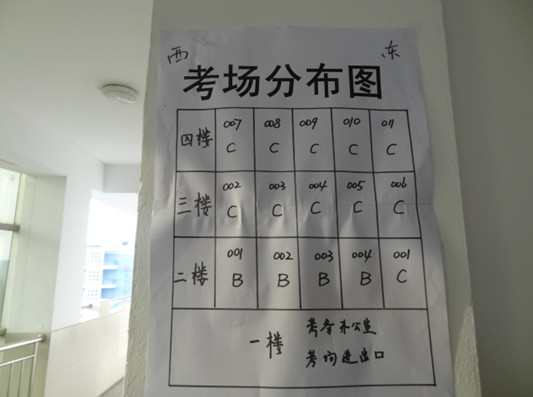 西 东
考场分布图
四楼 007 008 009 010 011
C C C C C
三楼 002 003 004 005 006
C C C C C
二楼 001 002 003 004 001
B B B B C
一楼 考务办公室
考询进出口